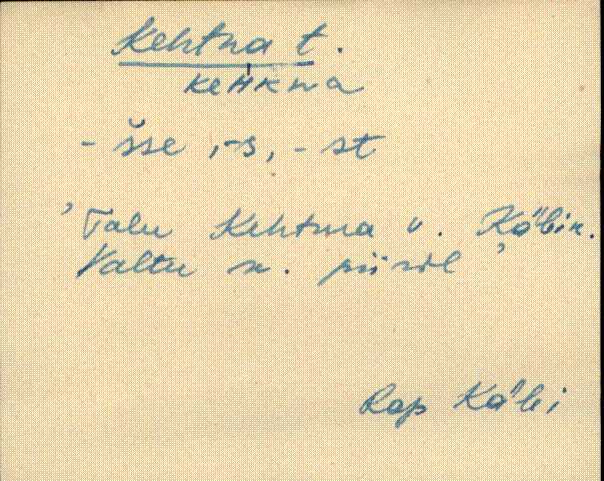 Kehtna t.
kehkna
- šse, -s, -st
'Talu Kehtna v. Käbik.
Valtu k. piiril'
Rap Käbi